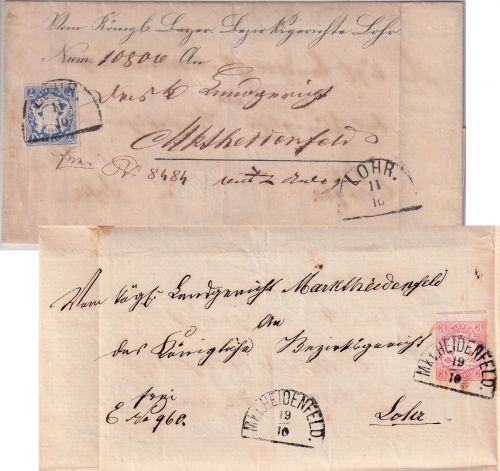 Vom Königl. Bayer. Bezirksgerichte Lohr
Num. 10806 An
das k Landgericht
Mktheidenfeld
frei 8484
LOHR.
11
10
LOHR.
11
10
7
Vom kögl: Landgericht Marktheidenfeld
An
das Königliche Bezirksgericht
frei
E No 960.
Lohr
MKT.HEIDENFELD.
19
10
MKT.HEIDENFELD.
19
10
3